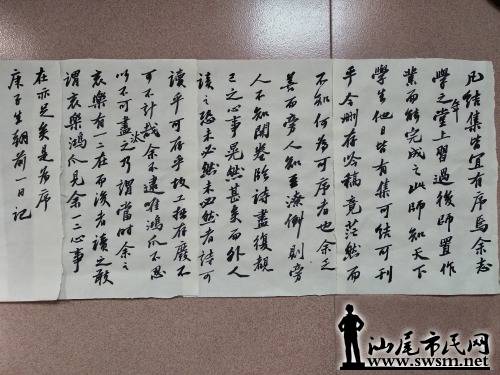 凡结集皆宜有序焉余志
學之年堂上習過後師置作
業而能完成之此師知天下
學生他日皆有集可结可刊
乎今删存吟稿竟茫然而
不知何為可序者也余之
善而旁人知至潦倒則旁
人不知開卷临詩盡復親
己之心事晃然甚矣而外人
讀之恐未必然未必然者詩可
讀乎可存乎故工拙存廢不
可不计哉余不逮唯鴻爪不忍
以不可盡汰之乃謂當時余之
哀樂有一二在而後者讀之敢
謂哀樂鴻爪見余一二心事
在亦足矣是為序
庚子生朝前一日记
汕尾市民网
www.swsm.net